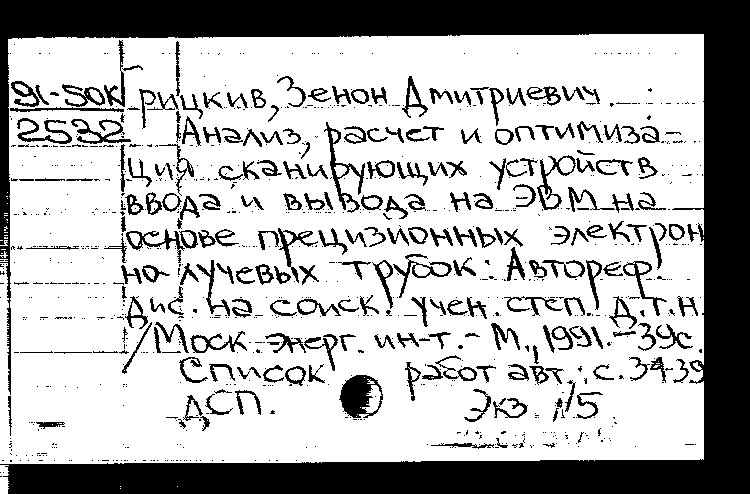 91-50К Грицкив, Зенон Дмитриевич.
2532 Анализ, расчет и оптимиза-
ция сканирующих устройств
ввода и вывода на ЭВМ на
основе прецизионных электрон
но-лучевых трубок: Автореф.
дис. на соиск. учен. степ. д.т.н.
/Моск. энерг. ин-т. - М., 1991. - 39с.
Список работ авт.: с. 34-39
ДСП. Экз. №5